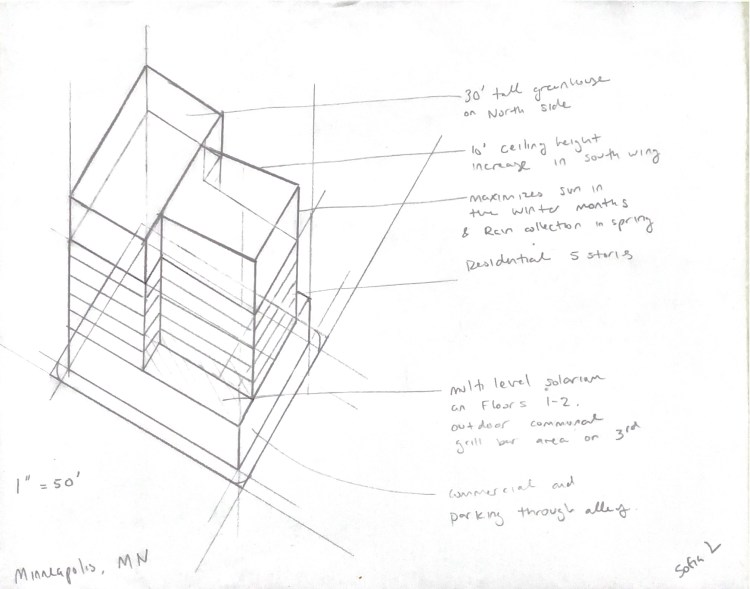 30' tall greenhouse
on North side
10' ceiling height
increase in south wing
maximizes sun in
the winter months
& Rain collection in spring
Residential 5 stories
multi level solarium
on Floors 1-2.
outdoor communal
grill bar area on 3rd
commercial and
parking through alley.
1" = 50'
Minneapolis, MN
Sofia L